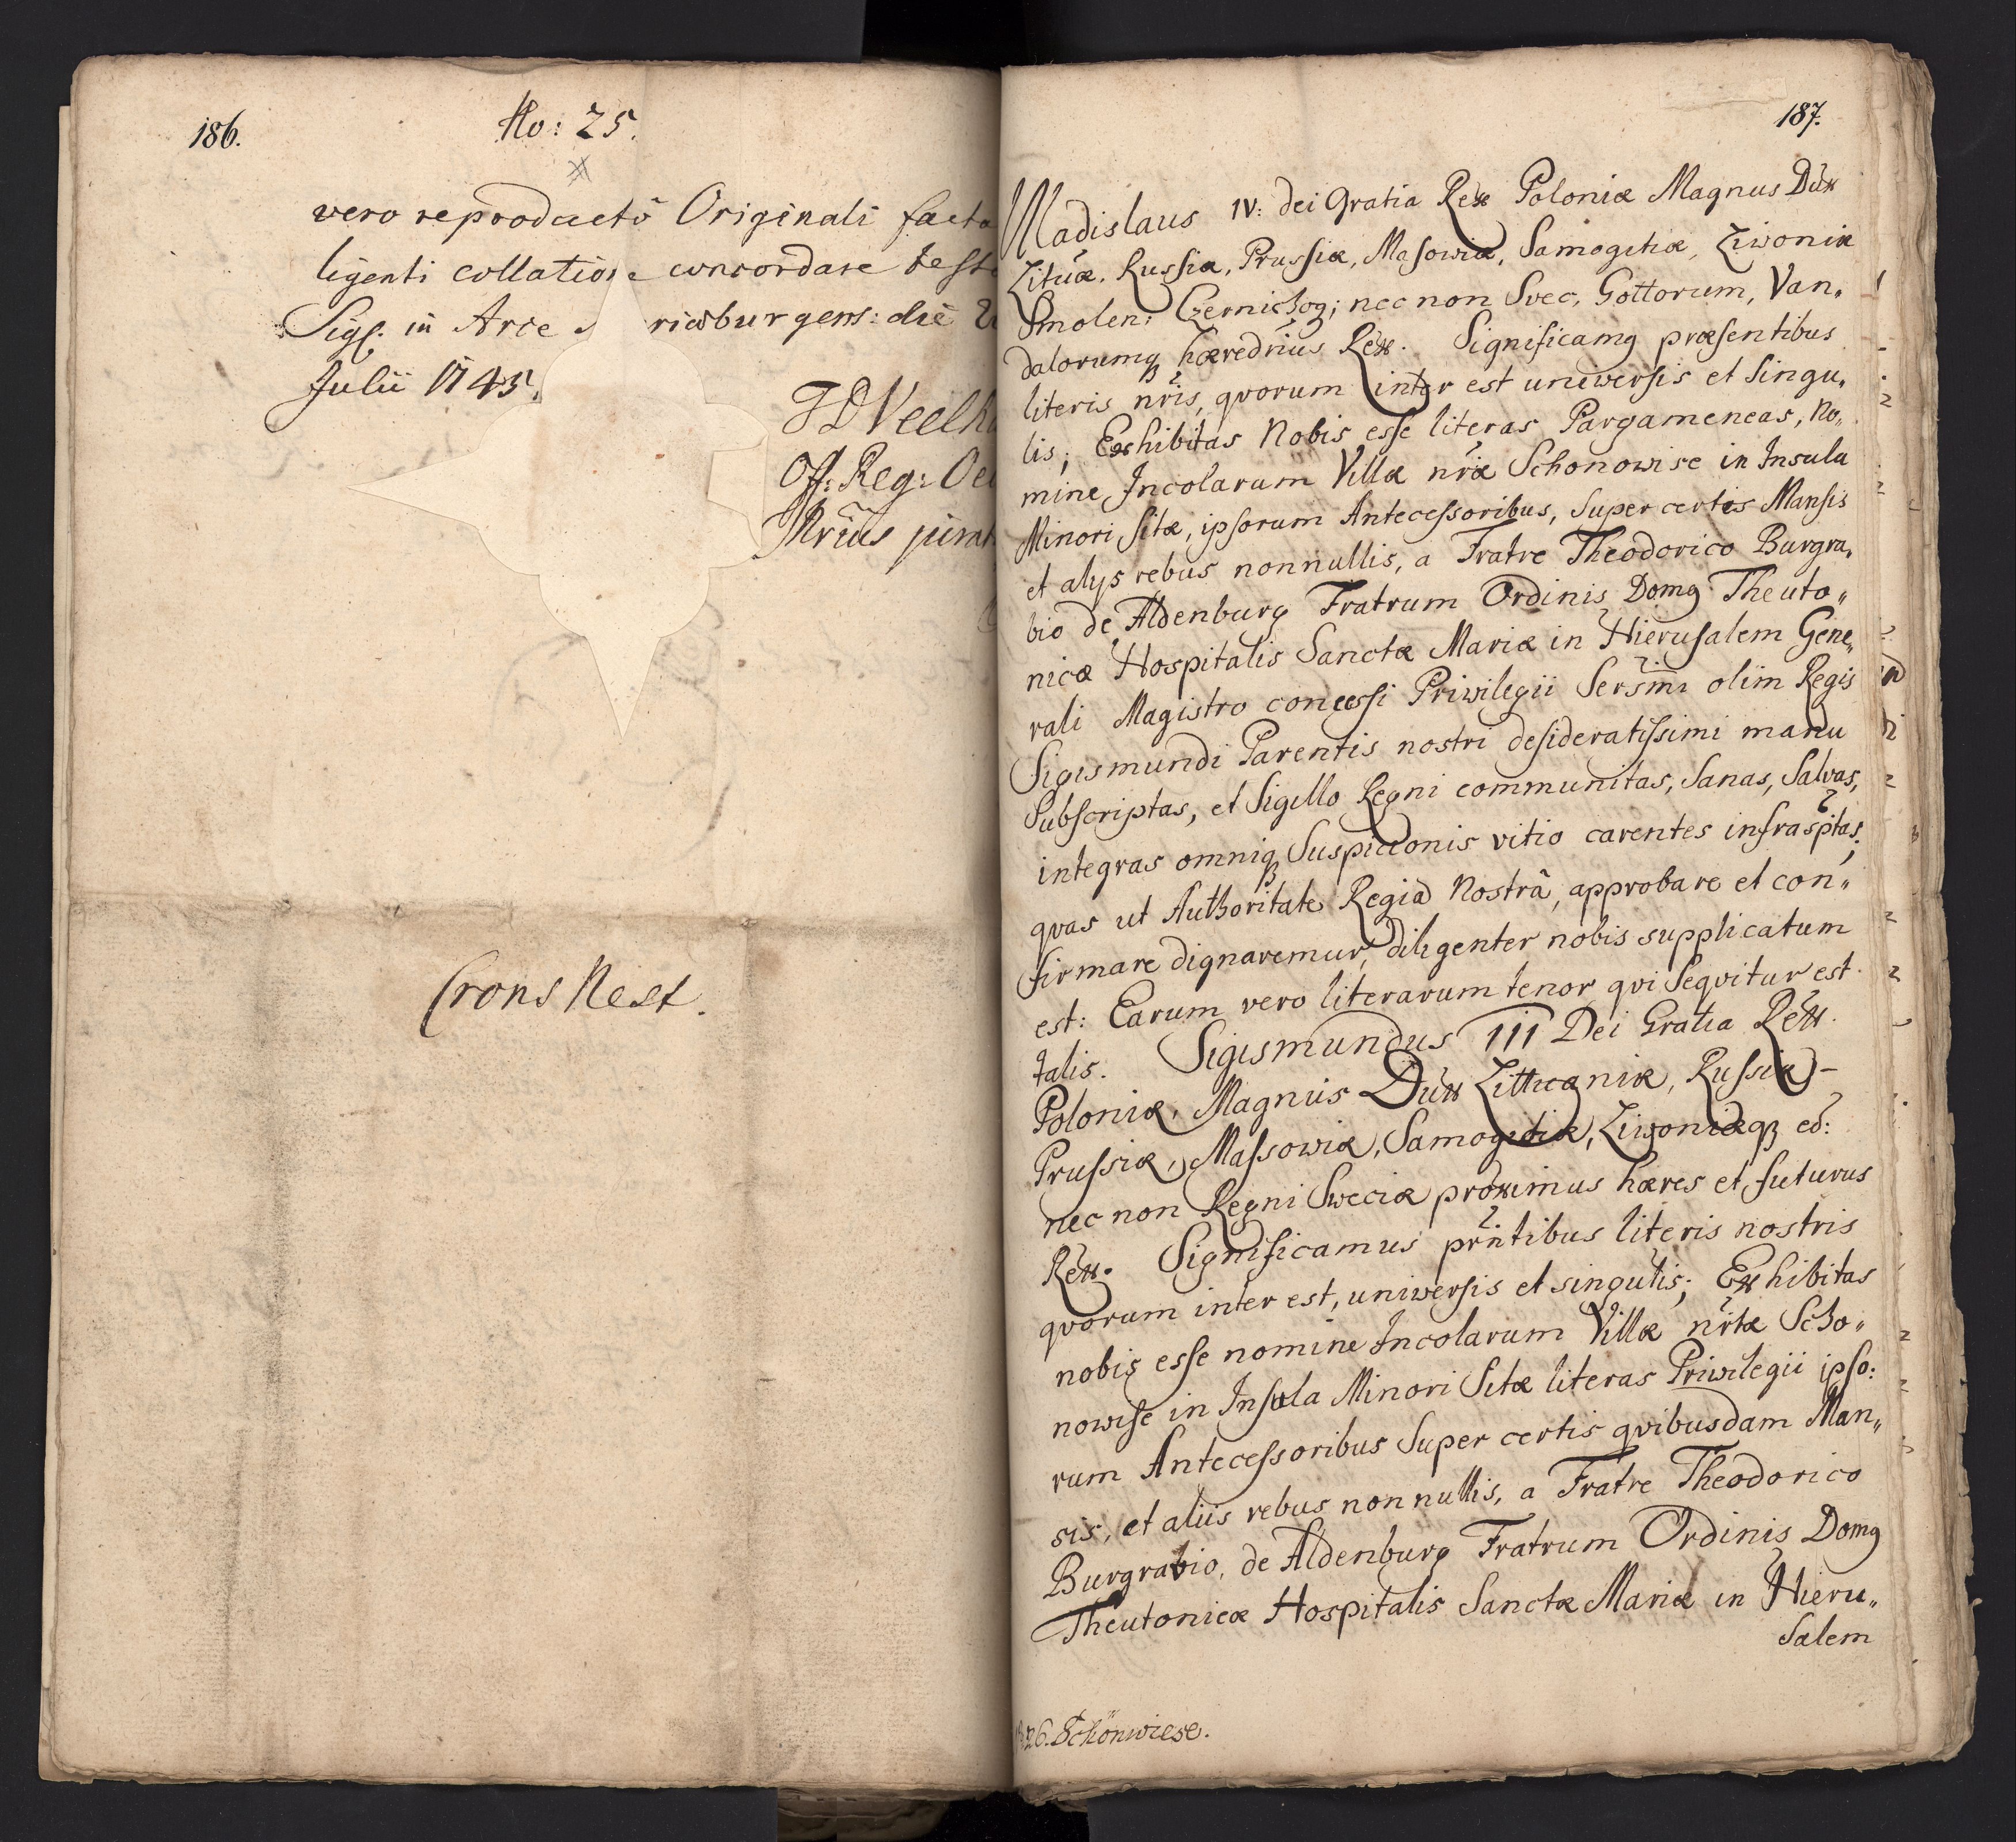 186.
No: 25.
vero reproducto Originali facta
ligenti collatione concordare testo
Sigl. in Arce riaburgens: die
Julii 1745.
Off: Reg: Oec
Nrius jurat
Crons Nest.
187.
Wladislaus IV: dei Gratia Rex Poloniæ Magnus Dux
Lituæ, Russiæ, Prussiæ, Masowiæ, Samogitiæ, Liwoniæ
Smolen: Czernichog; nec non Svec, Gottorum, Van„
dalorumq hæredrius Rex. Significamg præsentibus
literis nris, qvorum inter est uniwersis et Singu„
lis; Exhibitas Nobis esse literas Pargameneas, No„
mine Incolarum Villæ nræ Schonowise in Insula
Minori Sitæ, ipsorum Antecessoribus, Super certis Mansis
et alys rebus nonnullis, a Fratre Theodorico Burgra„
bio de Aldenburg Fratrum Ordinis Domg Theuto„
nicæ Hospitalis Sanctæ Mariæ in Hierusalem Gene„
rali Magistro concessi Priwilegii Sersmi olim Regis
Sigismundi Parentis nostri desideratissimi manu
Subscriptas, et Sigillo Regni communitas, Sanas, Salvas,
integras omniq Suspicionis vitio carentes infrasptas;
qvas ut Authoritate Regia Nostrâ, approbare et con„
firmare dignaremur, diligenter nobis supplicatum
est: Earum vero literarum tenor qvi Seqvitur est
talis. Sigismundus III Dei Gratia Rex
Poloniæ, Magnus Dux Littuaniæ, Russiæ –
Prussiæ, Massowiæ, Samogitiæ, Liwoniæq eð:
nec non Regni Sweciæ proximus hæres et futurus
Rex. Significamus prntibus literis nostris
qvorum inter est, uniwersis et singulis; Exhibitas
nobis esse nomine Incolarum Villæ Scho„
nowise in Insula Minori Sitæ literas Priwilegii ipso:
rum Antecessoribus Super certis qvibusdam Man„
sis, et aliis rebus nonnullis, a Fratre Theodorico
Burgrabio, de Aldenburg Fratrum Ordinis Domg
Theutonicæ Hospitalis Sanctæ Mariæ in Hieru„
Salem
26. Schönwiese.